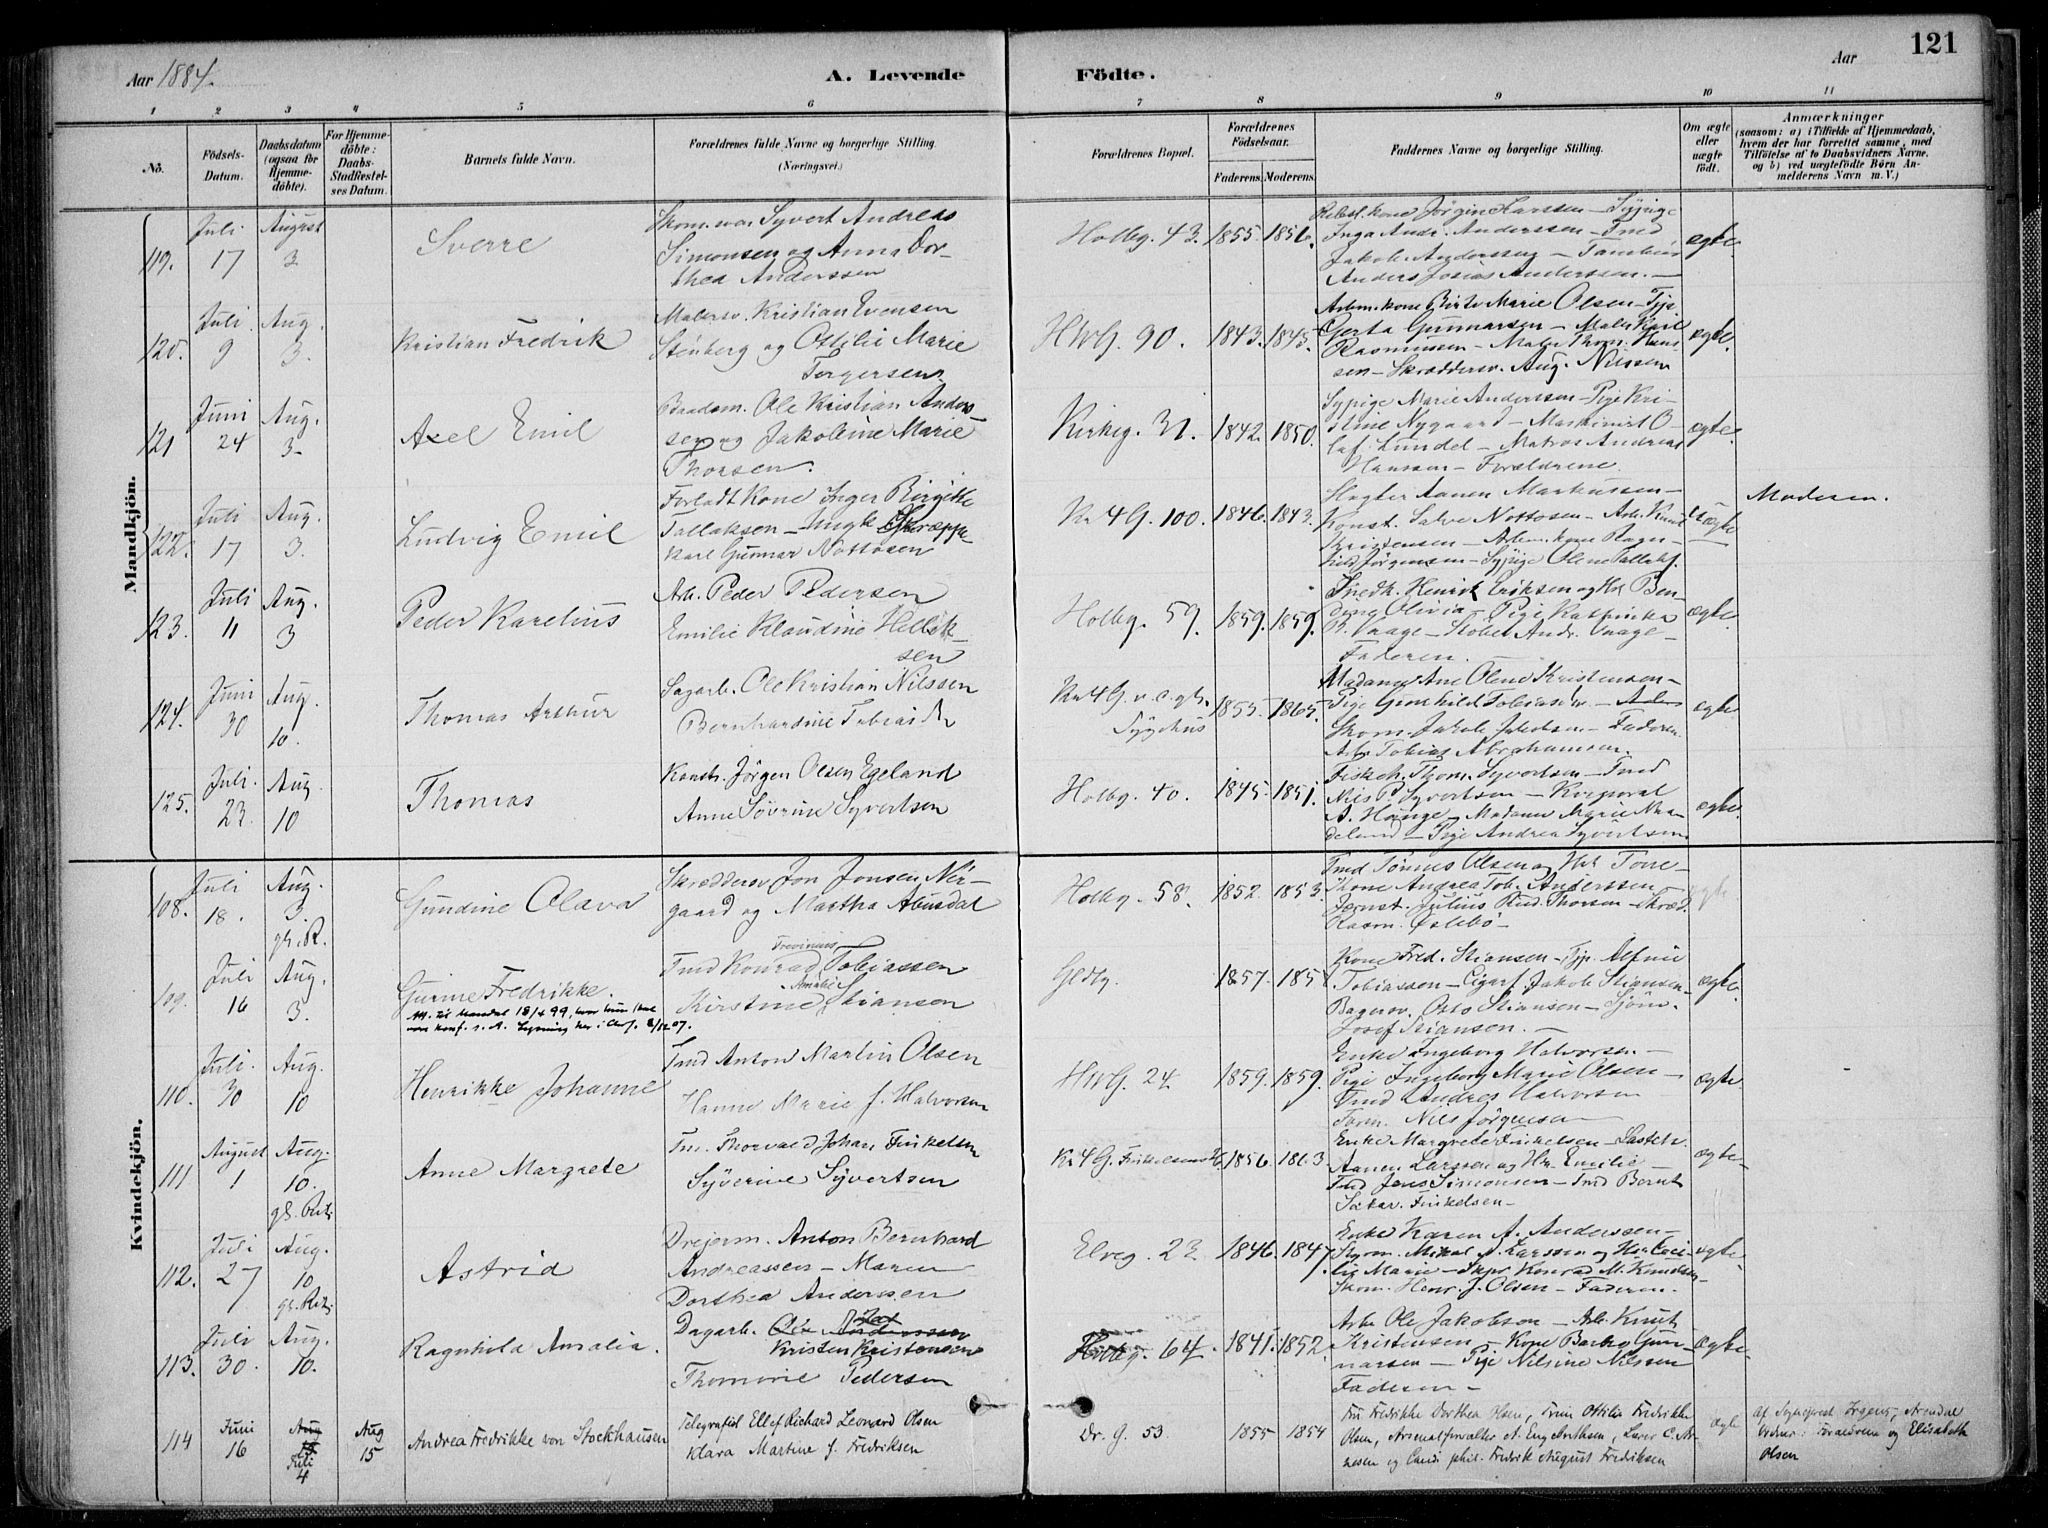 121
Aar 1884. A. Levende Födte. Aar
1 2 3 4 5 6 7 8 9 10 11
Nô. Födsels-Datum. Daabsdatum (ogsaa for Hjemmedöbte). For Hjemmedöbte: Daabs-Stadfæstelses Datum. Barnets fulde Navn. Forældrenes fulde Navne og borgerlige Stilling. (Næringsvei.) Forældrenes Bopæl. Forældrenes Födselsaar. Faderens. Moderens. Faddernes Navne og borgerlige Stilling. Om ægte eller uægte födt. Anmærkninger (saasom: a) i Tilfælde af Hjemmedaab, hvem der har forrettet samme, med Tilföielse af to Daabsvidners Navne, og b) ved uægtefödte Börn Anmelderens Navn m. V.)
Mandkjön.
119. Juli 17 August 3. Sverre Skom.sv. Syvert Andreas Simonsen og Anna Dorthea Anderssen Holbg. 43. 1855. 1856. Rebsl. kone Jörgine Larssen – Sypige Inga Andr. Anderssen – Tmd Jakob Anderssen – Tambur Anders Josias Anderssen. – ægte.
120. Juli 9 Aug. 3. Kristian Fredrik Malersv. Kristian Evensen Stenberg og Ottilie Marie Torgersen. HWG. 90. 1843. 1845. Arbm. kone Birte Marie Olsen – Tjp. Gerta Gunnarsen – Maler Karl Rasmussen – Maler Thom. Hanssen – Skræddersv. Aug. Nilssen ægte.
121 Juni 24 Aug. 3 Axel Emil Baadsm. Ole Kristian Anderssen og Jakobine Marie Thorsen. Kirkeg. 31. 1842. 1850. Sypige Marie Anderssen – Pige Kristine Nygaard – Maskinist Olaf Lundel – Matros Andreas Hanssen – Forældrene. ægte.
122. Juli 17 Aug. 3. Ludvig Emil Forladt Kone Inger Birgitte Tallaksen – Ungk Skræpp Karl Gunnar Nottosen Kr 4 G. 100. 1846. 1843. Slagter Aanen Markussen – Konst. Salve Nottosen – Arb. Knut Kristensen – Arbm. kone Ragnhild Jørgensen – Sypige Olene Tallaks. Uægte Moderen.
123. Juli 11 Aug. 3 Peder Karelius Arb. Peder Pedersen Emilie Klaudine Helliksen Holbg. 59. 1859. 1859. Snedk. Henrik Eriksen og Hu Bendine Olivia – Pige Katrinka B. Vaage – Stöber Andr. Vaage – Faderen. ægte.
124. Juni 30 Aug. 10. Thomas Arthur Sagarb. Ole Kristian Nilssen Bernhardine Tobiasdr Kr 4 G. v. C. gh. Sygehus 1855. 1865. Madame Ane Olene Kristensen – Pige Gunhild Tobiasdr. – Skom. Jakob Jakobsen – Faderen Arb. Tobias Abrahamsen. ægte.
125. Juli. 23 Aug. 10 Thomas Konst. Jörgen Olsen Egeland Anne Sövrine Syvertsen Holbg. 40. 1845. 1851. Fiskeh. Thom. Syvertsen – Tmd Nils P. Syvertsen – Korporal A. Hauge – Madame Marie Naadeland – Pige Andrea Syvertsen. ægte.
Kvindekjön.
108. Juli 18. Aug. 3. gl. R. Gundine Olava Skreddersv Jon Jonsen Nörgaard og Martha Abusdal Holbg. 58. 1852. 1853. Tmd Tönnes Olsen og Hu Tone – Kone Andrea Tob. Anderssen Jernst. Julius Rud. Thorsen – Skræd. Rasm. Östebö – ægte
109. Juli 16 Aug. 3. Gurine Fredrikke. Att. til Mandal 18/4 99, hvor hun skal være konf. s. A. Lysning her i Chrs. 2/12 07. Tmd Konrad Trevinius Tobiassen Kirstine Amalie Stiansen Gldby. 1857. 1858 Kone Fred. Stiansen – Tjp. Alfine Tobiassen – Cigarf. Jakob Stiansen – Bagersv. Otto Stiansen – Sjöm. Josef Stiansen. – ægte.
110. Juli. 30 Aug. 10 Henrikke Johanne Tmd Anton Martin Olsen Hanne Marie f. Halvorsen HWG. 24. 1859. 1859. Enke Ingeborg Halvorsen. – Pige Ingeborg Marie Olsen – Tmd Andres Halvorsen Tøm. Nils Jörgensen ægte
111 August 1 Aug. 10. gl. Rit. Anne Margrete Tm. Thorvald Johan Finkelsen Syverine Syvertsen Kr 4 G. Finkelsens H. 1856. 1863 Enke Margrete Finkelsen – Aanen Larssen og Hu. Emilie – Tmd Jens Simonsen – Tmd Bernt Sakar. Finkelsen – ægte –
112. Juli 27 Aug. 10 gl. Rit. Astrid Drejerm. Anton Bernhard Andreassen – Maren Dorthea Anderssen Elveg. 23. 1846. 1847. Enke Karen A. Anderssen – Skom. Mikal A. Larssen og Hu Cecilie Marie – Skpr Konrad M. Knudsen – Skom. Henr. J. Olsen – Faderen. ægte –
113. Juli 30. Aug. 10. Ragnhild Amalia. Dagarb. Ole Anderssen Kristen Kristensen Thomine Pedersen Holbg. 64. 1841. 1852. Arb. Ole Jakobsen – Arb. Knut Kristensen – Kone Barbro Gunnarsen – Pige Nilsine Nilssen Faderen – ægte –
114 Juni 16 Aug 10 Juli 4 Aug 15 Andrea Fredrikke von Stockhausen Telegrafist Ellef Richard Leonard Olsen Klara Martine f. Fredriksen Dr. G. 53 1855 1854 Fru Fredrikke Dorthea Olsen, Frøken Ottilia Fredrikke Olsen, Arsenalforvalter A. Eng Arntksen, Lærer C. Arnesen og Cand. phil. Fredrik August Fredriksen ægte Af Sognepræst Irgens, Arendal Vidner: Forældrene og Elisabeth Olsen